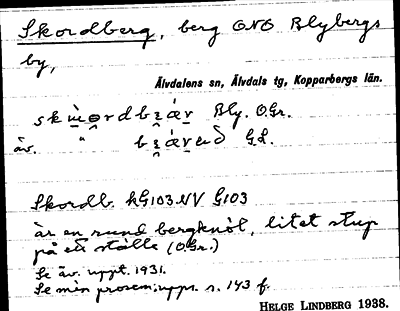 Skordberg, berg ONO Blybergs
by,
Älvdalens sn, Älvdals tg, Kopparbergs län.
Bly. O.Gr.
äv. G.L.
Skordb. kG103NV G103
är en rund bergknöl, litet stup
på ett ställe (O.Gr.)
Se äv. uppt. 1931.
Se min prosem.upps. s. 143 f.
HELGE LINDBERG 1938.